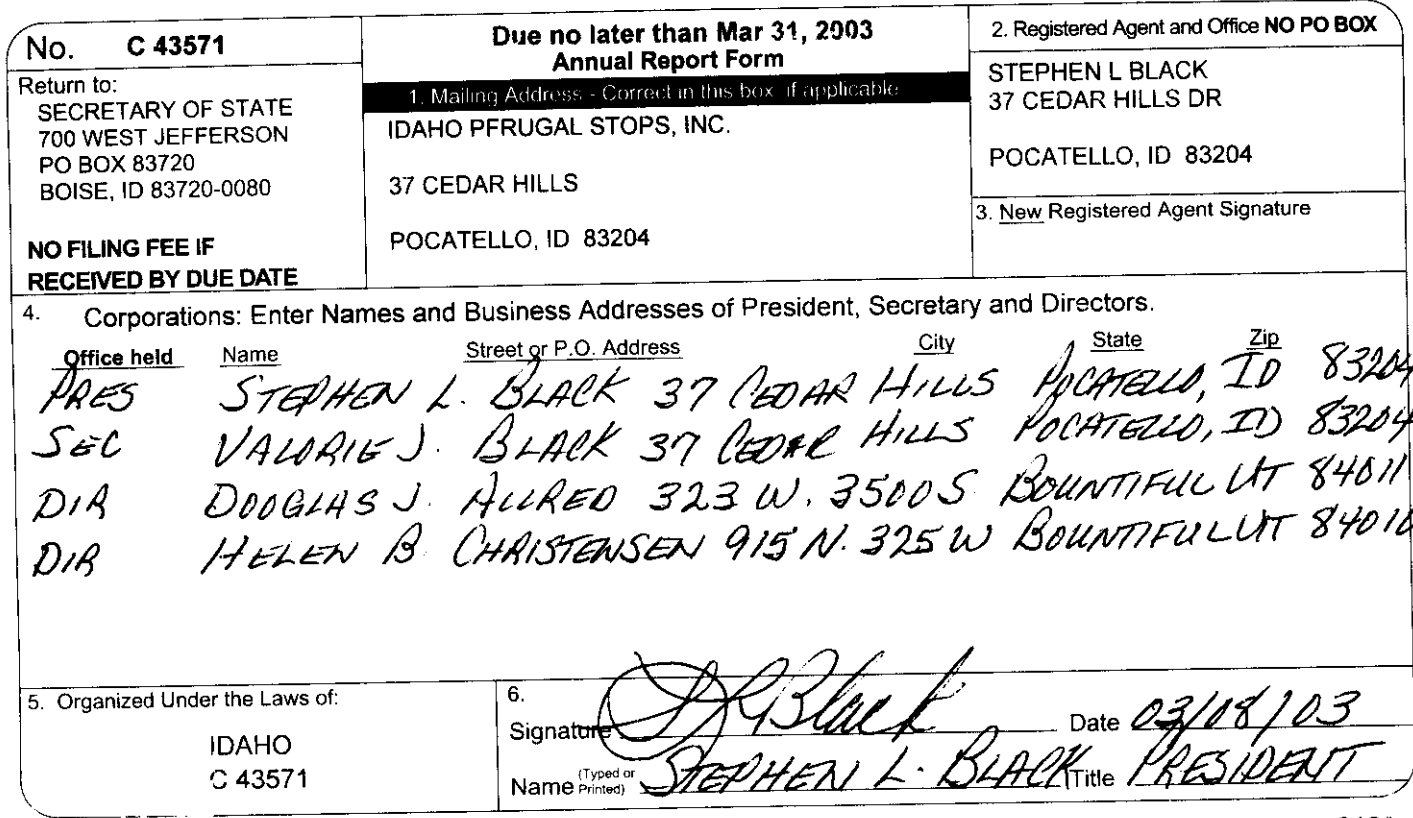 No. C 43571
Return to:
SECRETARY OF STATE
700 WEST JEFFERSON
PO BOX 83720
BOISE, ID 83720-0080
NO FILING FEE IF
RECEIVED BY DUE DATE
Due no later than Mar 31, 2003
Annual Report Form
1. Mailing Address - Correct in this box if applicable
IDAHO PFRUGAL STOPS, INC.
37 CEDAR HILLS
POCATELLO, ID 83204
2. Registered Agent and Office NO PO BOX
STEPHEN L BLACK
37 CEDAR HILLS DR
POCATELLO, ID 83204
3. New Registered Agent Signature
4. Corporations: Enter Names and Business Addresses of President, Secretary and Directors.
Office held Name Street or P.O. Address City State Zip
PRES STEPHEN L. BLACK 37 CEDAR HILLS POCATELLO, ID 83204
SEC VALORIE J. BLACK 37 CEDAR HILLS POCATELLO, ID 83204
DIR DOUGLAS J. ALLRED 323 W. 3500 S BOUNTIFUL UT 84011
DIR HELEN B. CHRISTENSEN 915 N. 325 W BOUNTIFUL UT 84010
5. Organized Under the Laws of:
IDAHO
C 43571
6.
Signature SLBlack Date 03/08/03
Name (Typed or Printed) STEPHEN L. BLACK Title PRESIDENT